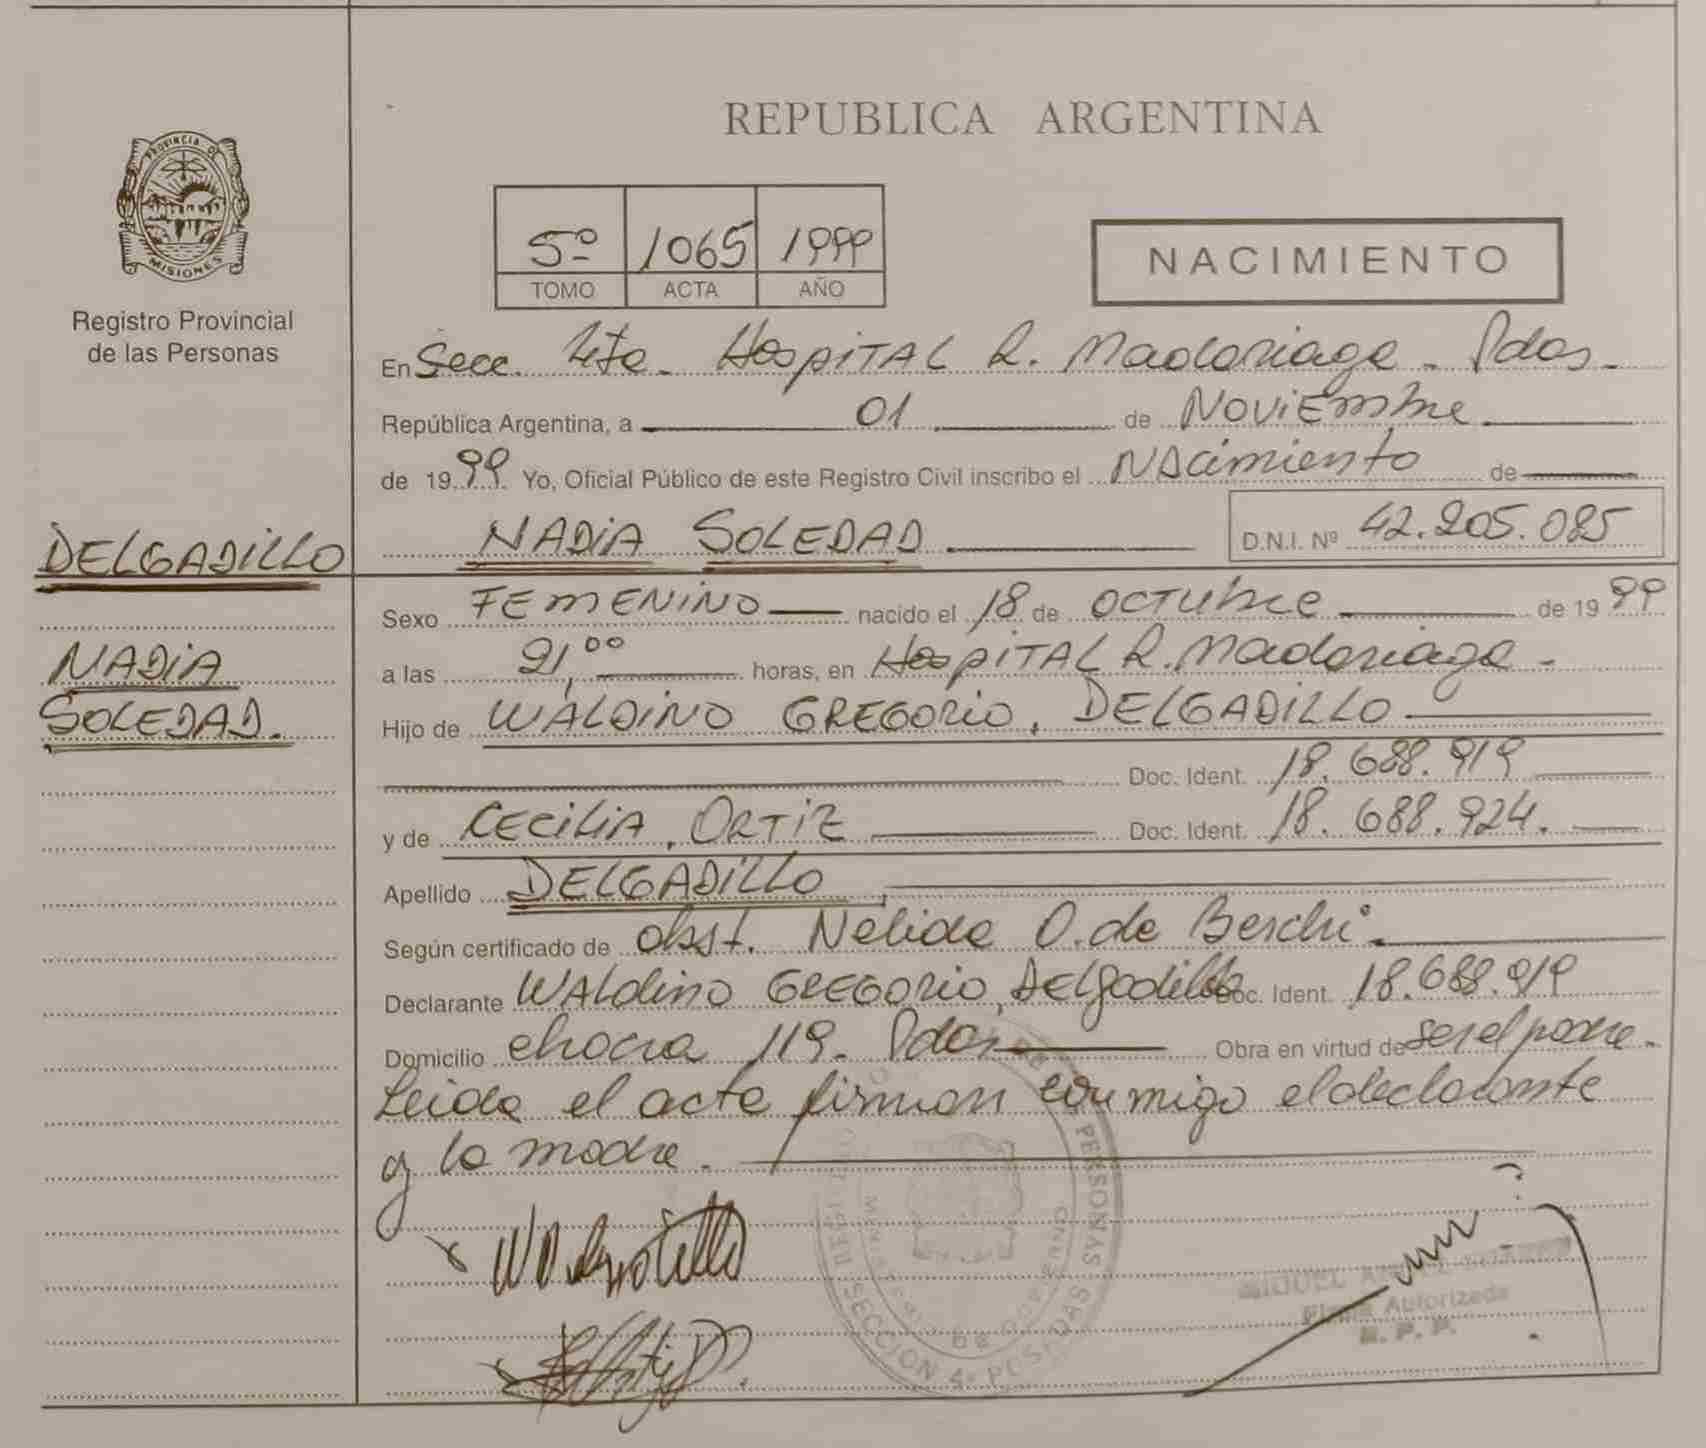 REPUBLICA ARGENTINA
PROVINCIA DE
MISIONES
Registro Provincial
de las Personas
5º 1065 1999
TOMO ACTA AÑO
NACIMIENTO
En Secc. 4ta. Hospital R. Madariaga - Pdas.
República Argentina, a 01 de Noviembre
de 1999 Yo, Oficial Público de este Registro Civil inscribo el Nacimiento de
NADIA SOLEDAD
D.N.I. Nº 42.205.085
DELGADILLO
NADIA
SOLEDAD.
Sexo FEMENINO nacido el 18 de octubre de 1999
a las 21,00 horas, en Hospital R. Madariaga -
Hijo de WALDINO GREGORIO, DELGADILLO
Doc. Ident. 18.688.919
y de CECILIA, ORTIZ Doc. Ident. 18.688.924.
Apellido DELGADILLO
Según certificado de obst. Nelida O. de Beschi.
Declarante WALDINO GREGORIO, Delgadillo Doc. Ident. 18.688.919
Domicilio chacra 119. Pdas. Obra en virtud de ser el padre.
Leida el acta firman conmigo el declarante
y la madre.
SECCION 4ª POSADAS
PERSONAS
MIGUEL ANGEL
Firma Autorizada
R. P. P.